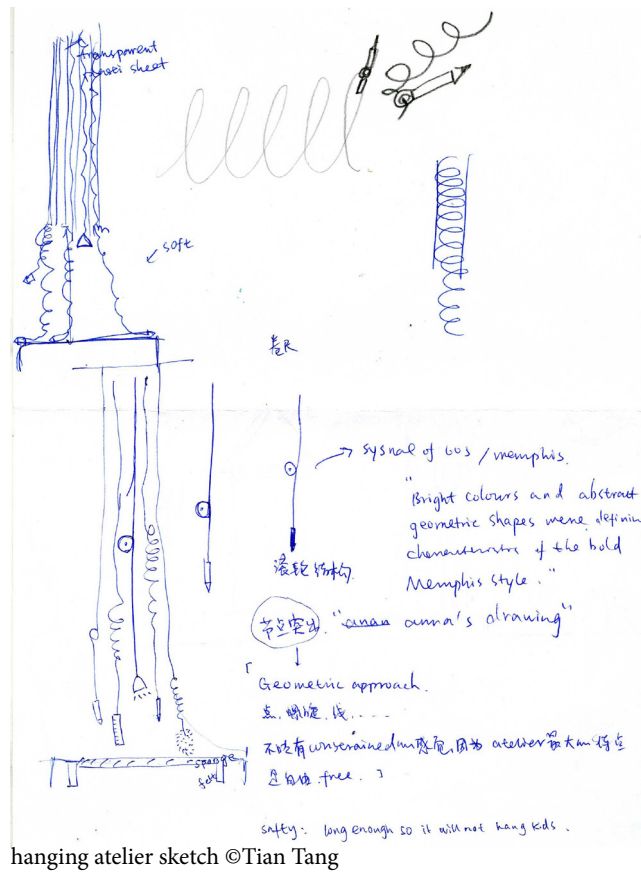 transparent
sheet
soft
卷尺
sysnal of 60s / memphis.
"Bright colours and abstract
geometric shapes were definin
of the bold
Memphis style."
滚轮结构
节点突出. "anna's drawing"
「Geometric approach.
点.螺旋.线.....
不能有constrained的感觉,因为atelier最大的特点
是自由.free.」
sponge
safty: long enough so it will not hang kids.
hanging atelier sketch ©Tian Tang